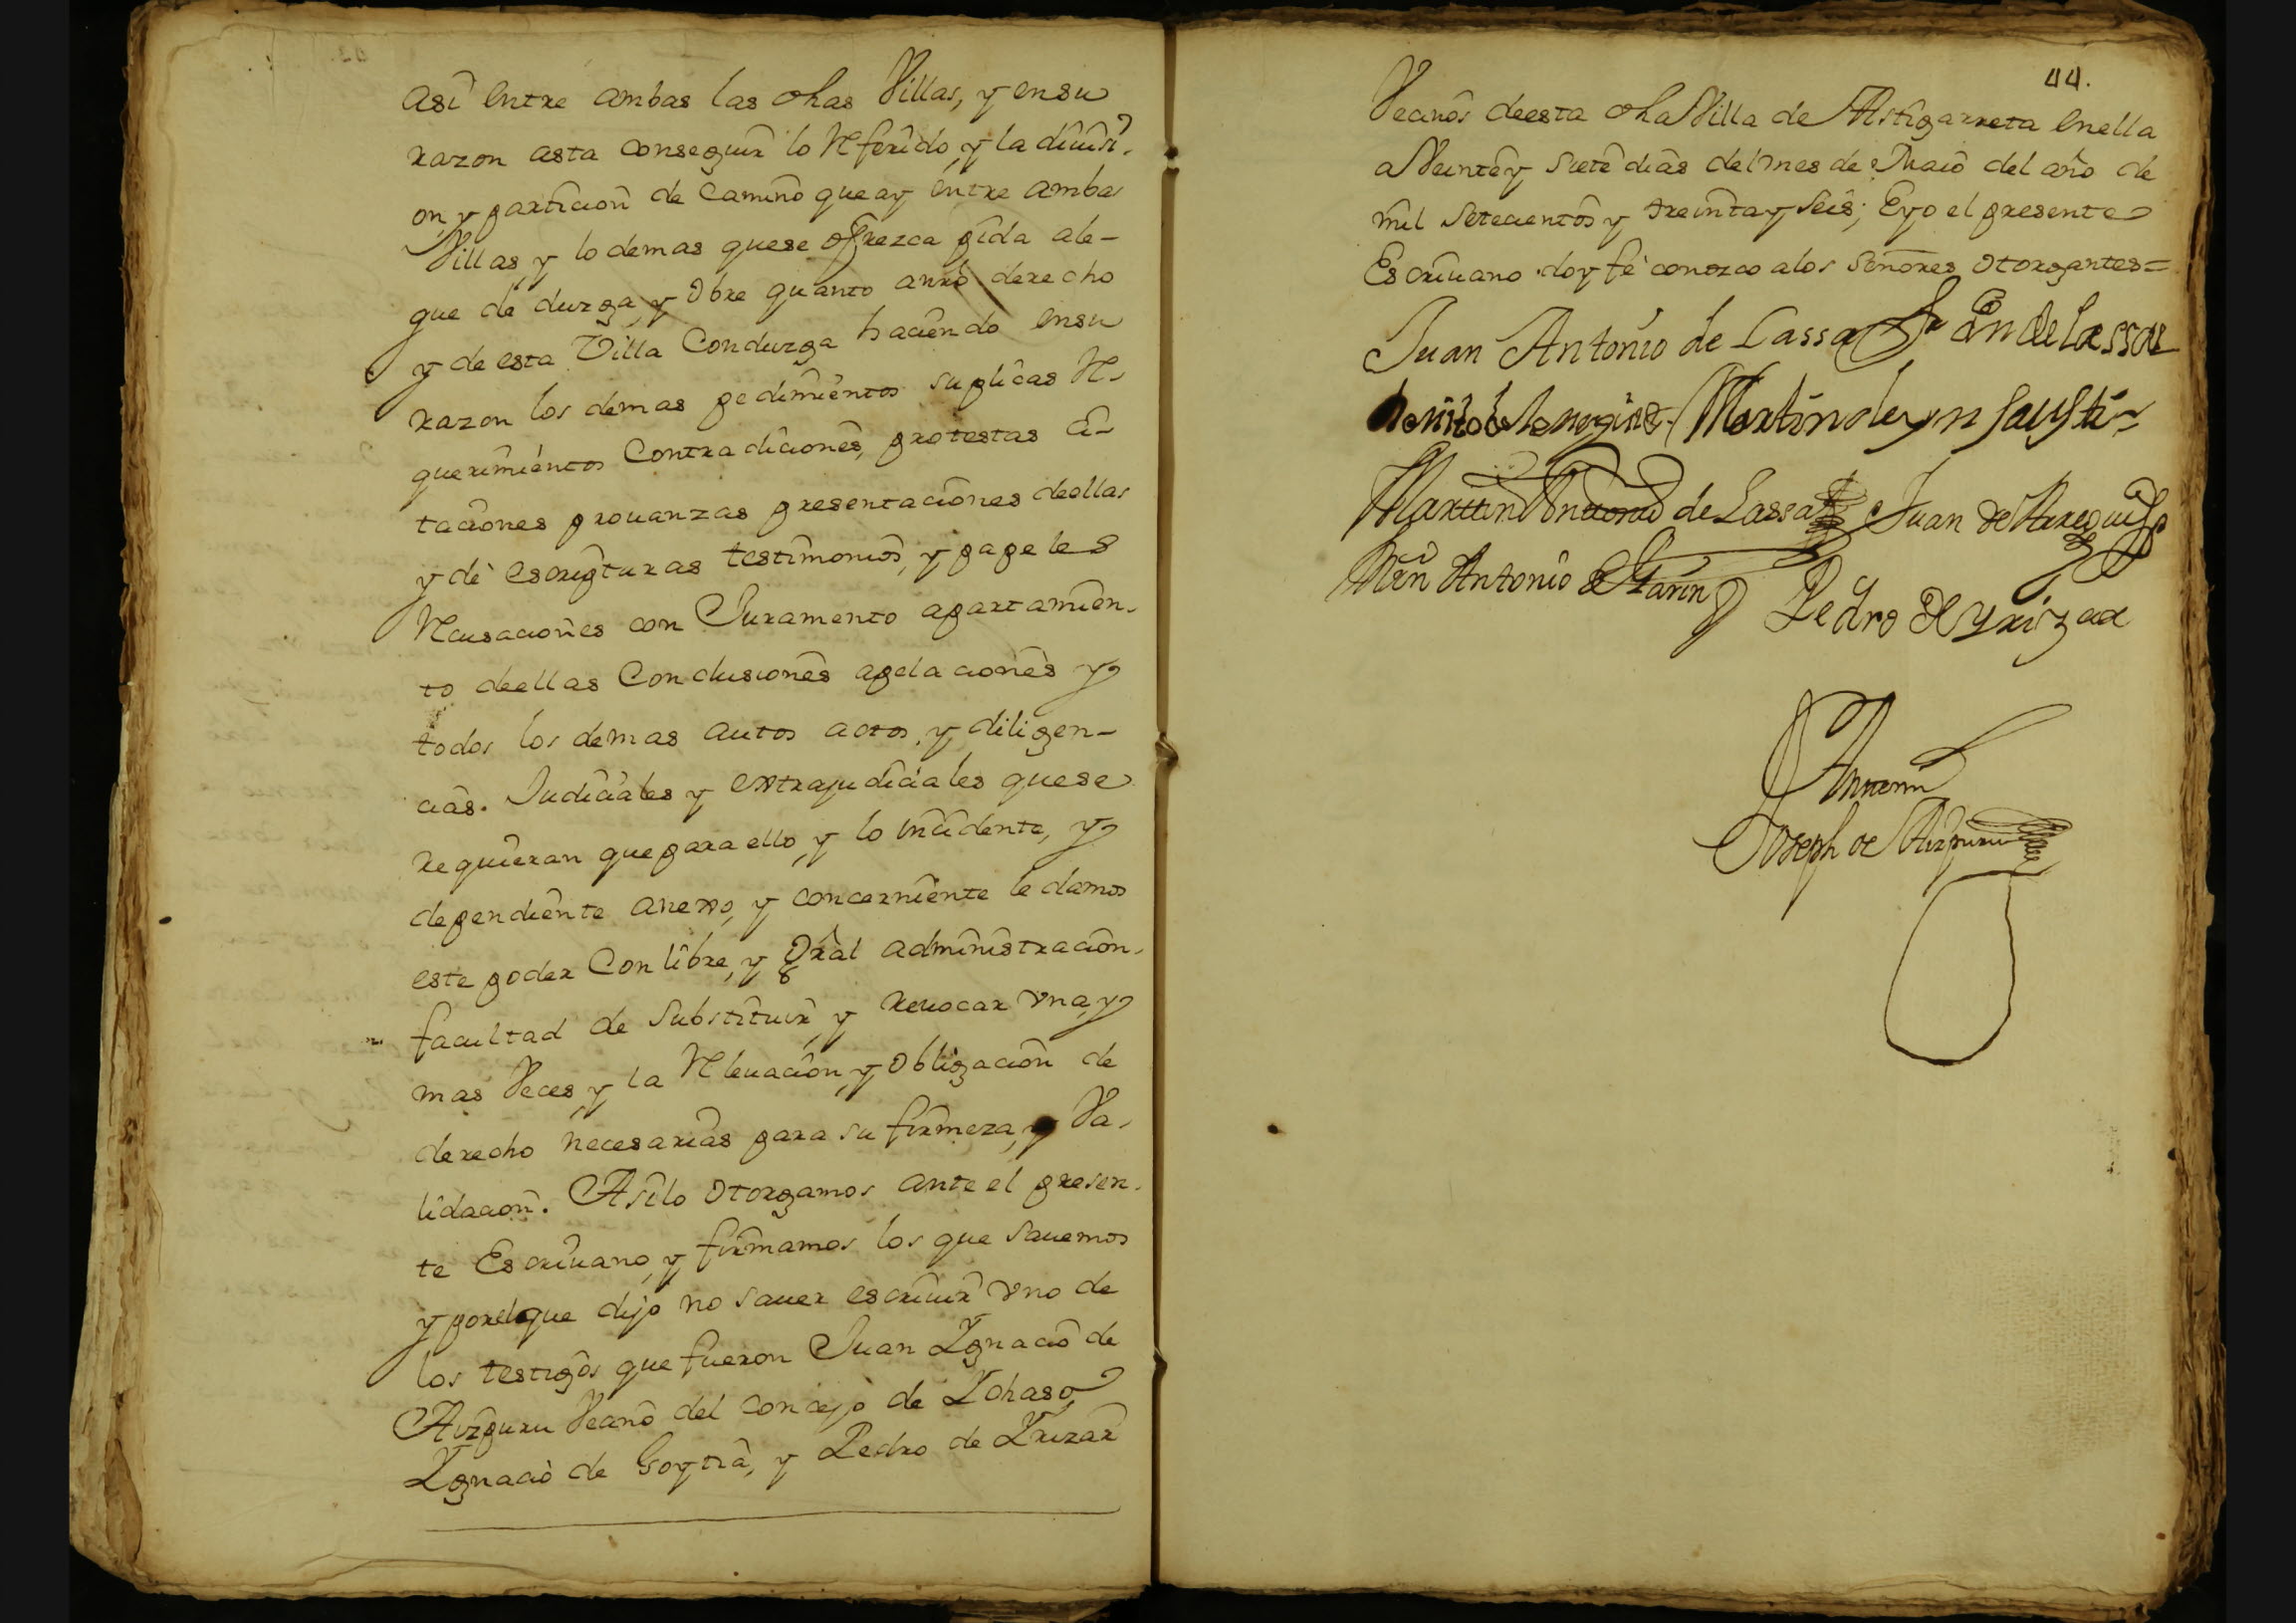 asi entre ambas las dhas Villas, y en su
razon asta conseguir lo Referido, y la divisi-
on, y particion de Camino que ay entre ambas
Villas, y lo demas que se ofrezca pida ale-
gue deduzga, y obre quanto a nro derecho
y de esta Villa Conduzga haciendo en su
razon los demas pedimientos suplicas Re-
querimientos Contradiciones, protestas Ci-
taciones provanzas presentaciones de ellas
y de escripturas testimonios, y papeles
Recusaciones con Juramento apartamien-
to de ellas Conclusiones apelaciones y
todos los demas autos actos, y diligen-
cias. Judiciales y extrajudiciales que se
requieran que para ello, y lo incidente, y
dependiente anexo, y concerniente le damos
este poder Con libre, y gral administracion.
facultad de substituir, y revocar vna, y
mas Veces, y la Relevacion, y obligacion de
derecho necesarias para su firmeza, y Va-
lidacion. Asi lo otorgamos ante el presen-
te Escrivano, y firmamos los que savemos
y por el que dijo no saver escrivir vno de
los testigos que fueron Juan Ygnacio de
Aizpuru Vecino del concejo de Ychaso,
Ygnacio de Goytia, y Pedro de Yrizar
44.
Vecinos de esta dha Villa de Astigarreta en ella
a Veinte y siete dias del mes de Maio del año de
mil setecientos y treinta y seis; E yo el presente
Escrivano doy fe conozco a los Señores otorgantes=
Juan Antonio de Lassa Jn de Lassa
Martin de ynsausti
Martin Antonio de Lassa Juan de Arregui
Mrn Antonio de Garin Pedro de Yrizar
Ante mi
Joseph de Aizpuru